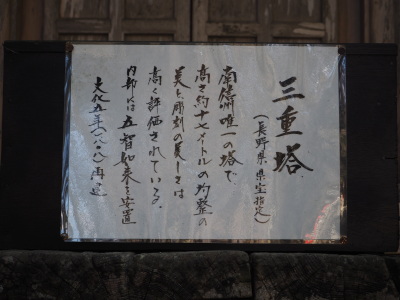 三重塔
(長野県県宝指定)
南信州唯一の塔で
高さ約十七メートルの均整の
美と彫刻の美しさは
高く評価されている。
内部には五智如来を安置
文化五年(一八〇八)再建